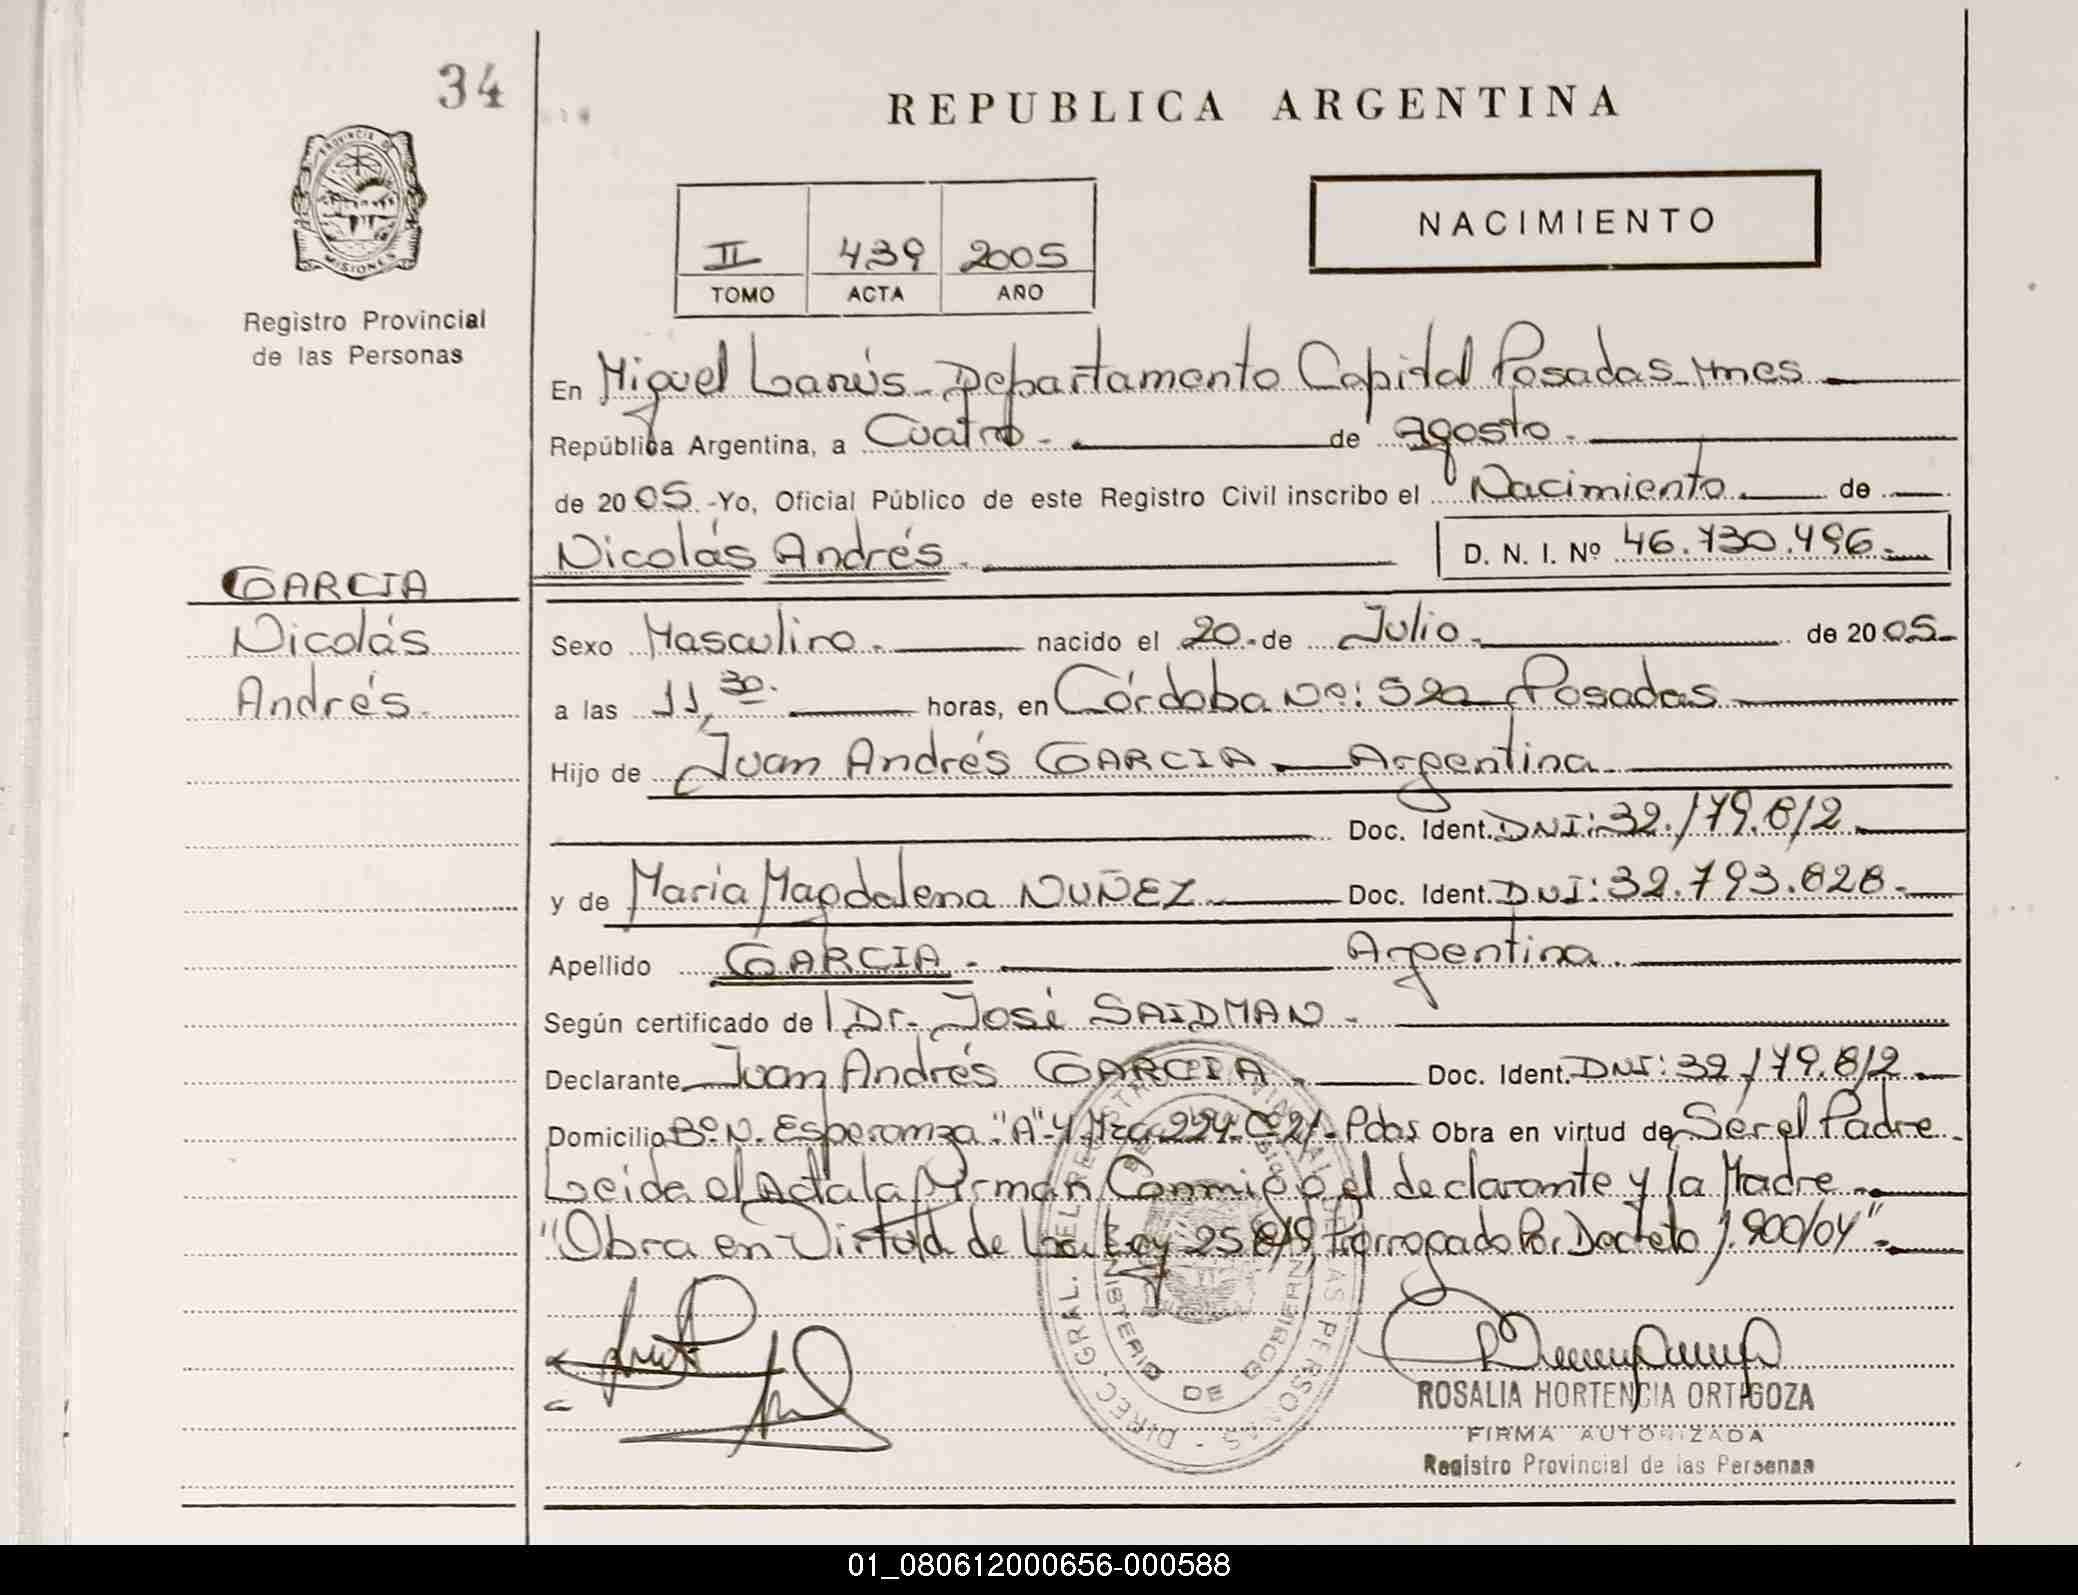 34
PROVINCIA DE MISIONES
Registro Provincial
de las Personas
GARCIA
Nicolás
Andrés.
REPUBLICA ARGENTINA
II 439 2005
TOMO ACTA AÑO
NACIMIENTO
En Miguel Lanús - Departamento Capital Posadas Mnes
República Argentina, a Cuatro - de Agosto -
de 2005 -Yo, Oficial Público de este Registro Civil inscribo el Nacimiento de
Nicolás Andrés. D. N. I. Nº 46.730.496.-
Sexo Masculino. nacido el 20.- de Julio. de 2005
a las 11,30. horas, en Córdoba Nº: 520 Posadas
Hijo de Juan Andrés GARCIA - Argentina.
Doc. Ident. DNI: 32.179.812
y de Maria Magdalena NUÑEZ Doc. Ident. DNI: 32.793.828.-
Apellido GARCIA. Argentina.
Según certificado de Dr. José SAIDMAN -
Declarante Juan Andrés GARCIA. Doc. Ident. DNI: 32.179.812
Domicilio Bº N. Esperanza "A"-4 Mza 224- Cº 21- Pdas Obra en virtud de Ser el Padre.
Leida el Acta la Firman Conmigo el declarante y la Madre.
"Obra en Virtud de la Ley 25.819 Prorrogado Por Decreto 1.900/04".-
DIREC. GRAL. DEL REGISTRO PROVINCIAL DE LAS PERSONAS
MINISTERIO DE GOBIERNO
ROSALIA HORTENCIA ORTIGOZA
FIRMA AUTORIZADA
Registro Provincial de las Personas
01_080612000656-000588